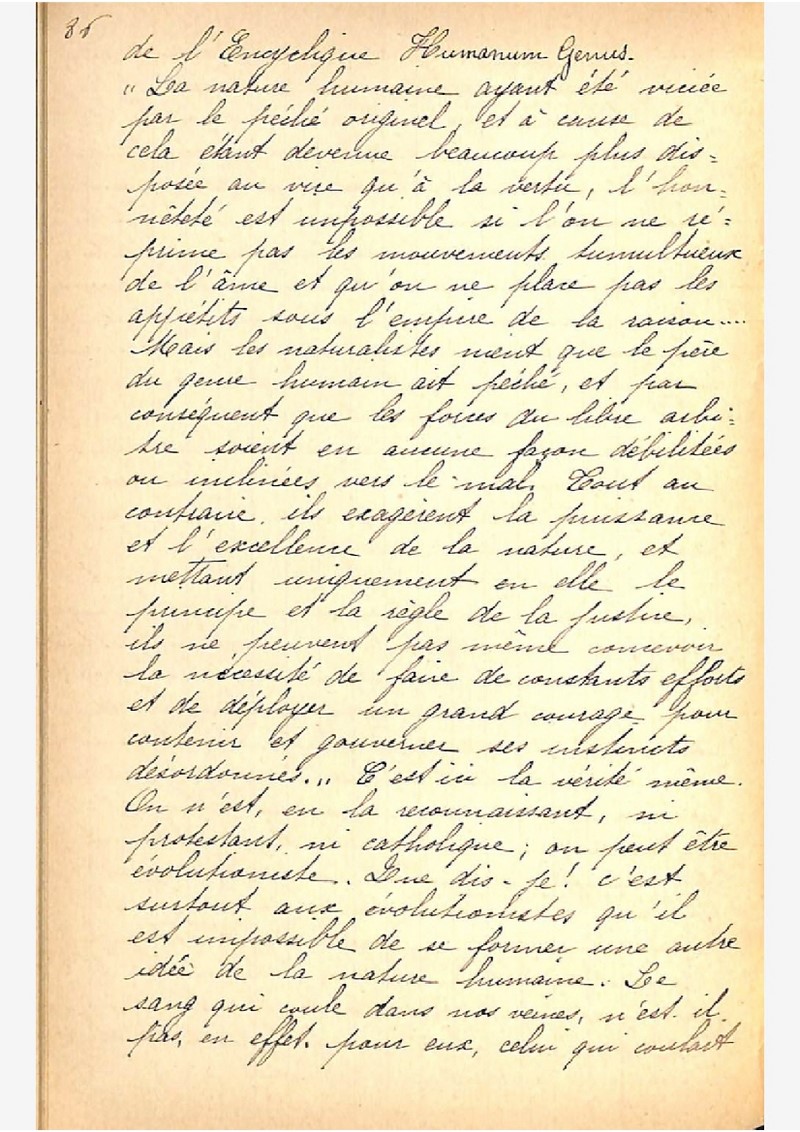 86
de l'Encyclique Humanum Genus.
"La nature humaine ayant été viciée
par le péché originel, et à cause de
cela étant devenue beaucoup plus dis=
posée au vice qu'à la vertu, l'hon=
nêteté est impossible si l'on ne ré=
prime pas les mouvements tumultueux
de l'âme et qu'on ne place pas les
appétits sous l'empire de la raison....
Mais les naturalistes nient que le père
du genre humain ait péché, et par
conséquent que les forces du libre arbi=
tre soient en aucune façon débilitées
ou inclinées vers le mal. Tout au
contraire, ils exagèrent la puissance
et l'excellence de la nature, et
mettant uniquement en elle le
principe et la règle de la justice,
ils ne peuvent pas même concevoir
la nécessité de faire de constants efforts
et de déployer un grand courage pour
contenir et gouverner ses instincts
désordonnés." C'est ici la vérité même.
On n'est, en la reconnaissant, ni
protestant, ni catholique; on peut être
évolutioniste. Que dis-je! c'est
surtout aux évolutionistes qu'il
est impossible de se former une autre
idée de la nature humaine. Le
sang qui coule dans nos veines, n'est-il
pas, en effet, pour eux, celui qui coulait